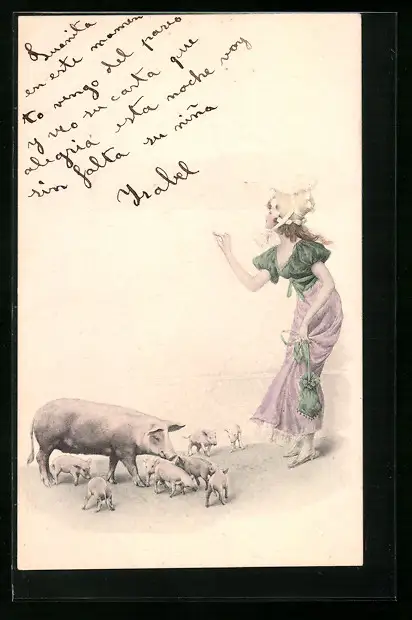 Juanita
en este momen
to vengo del paseo
y veo su carta que
alegria esta noche voy
sin falta su niña
Ysabel